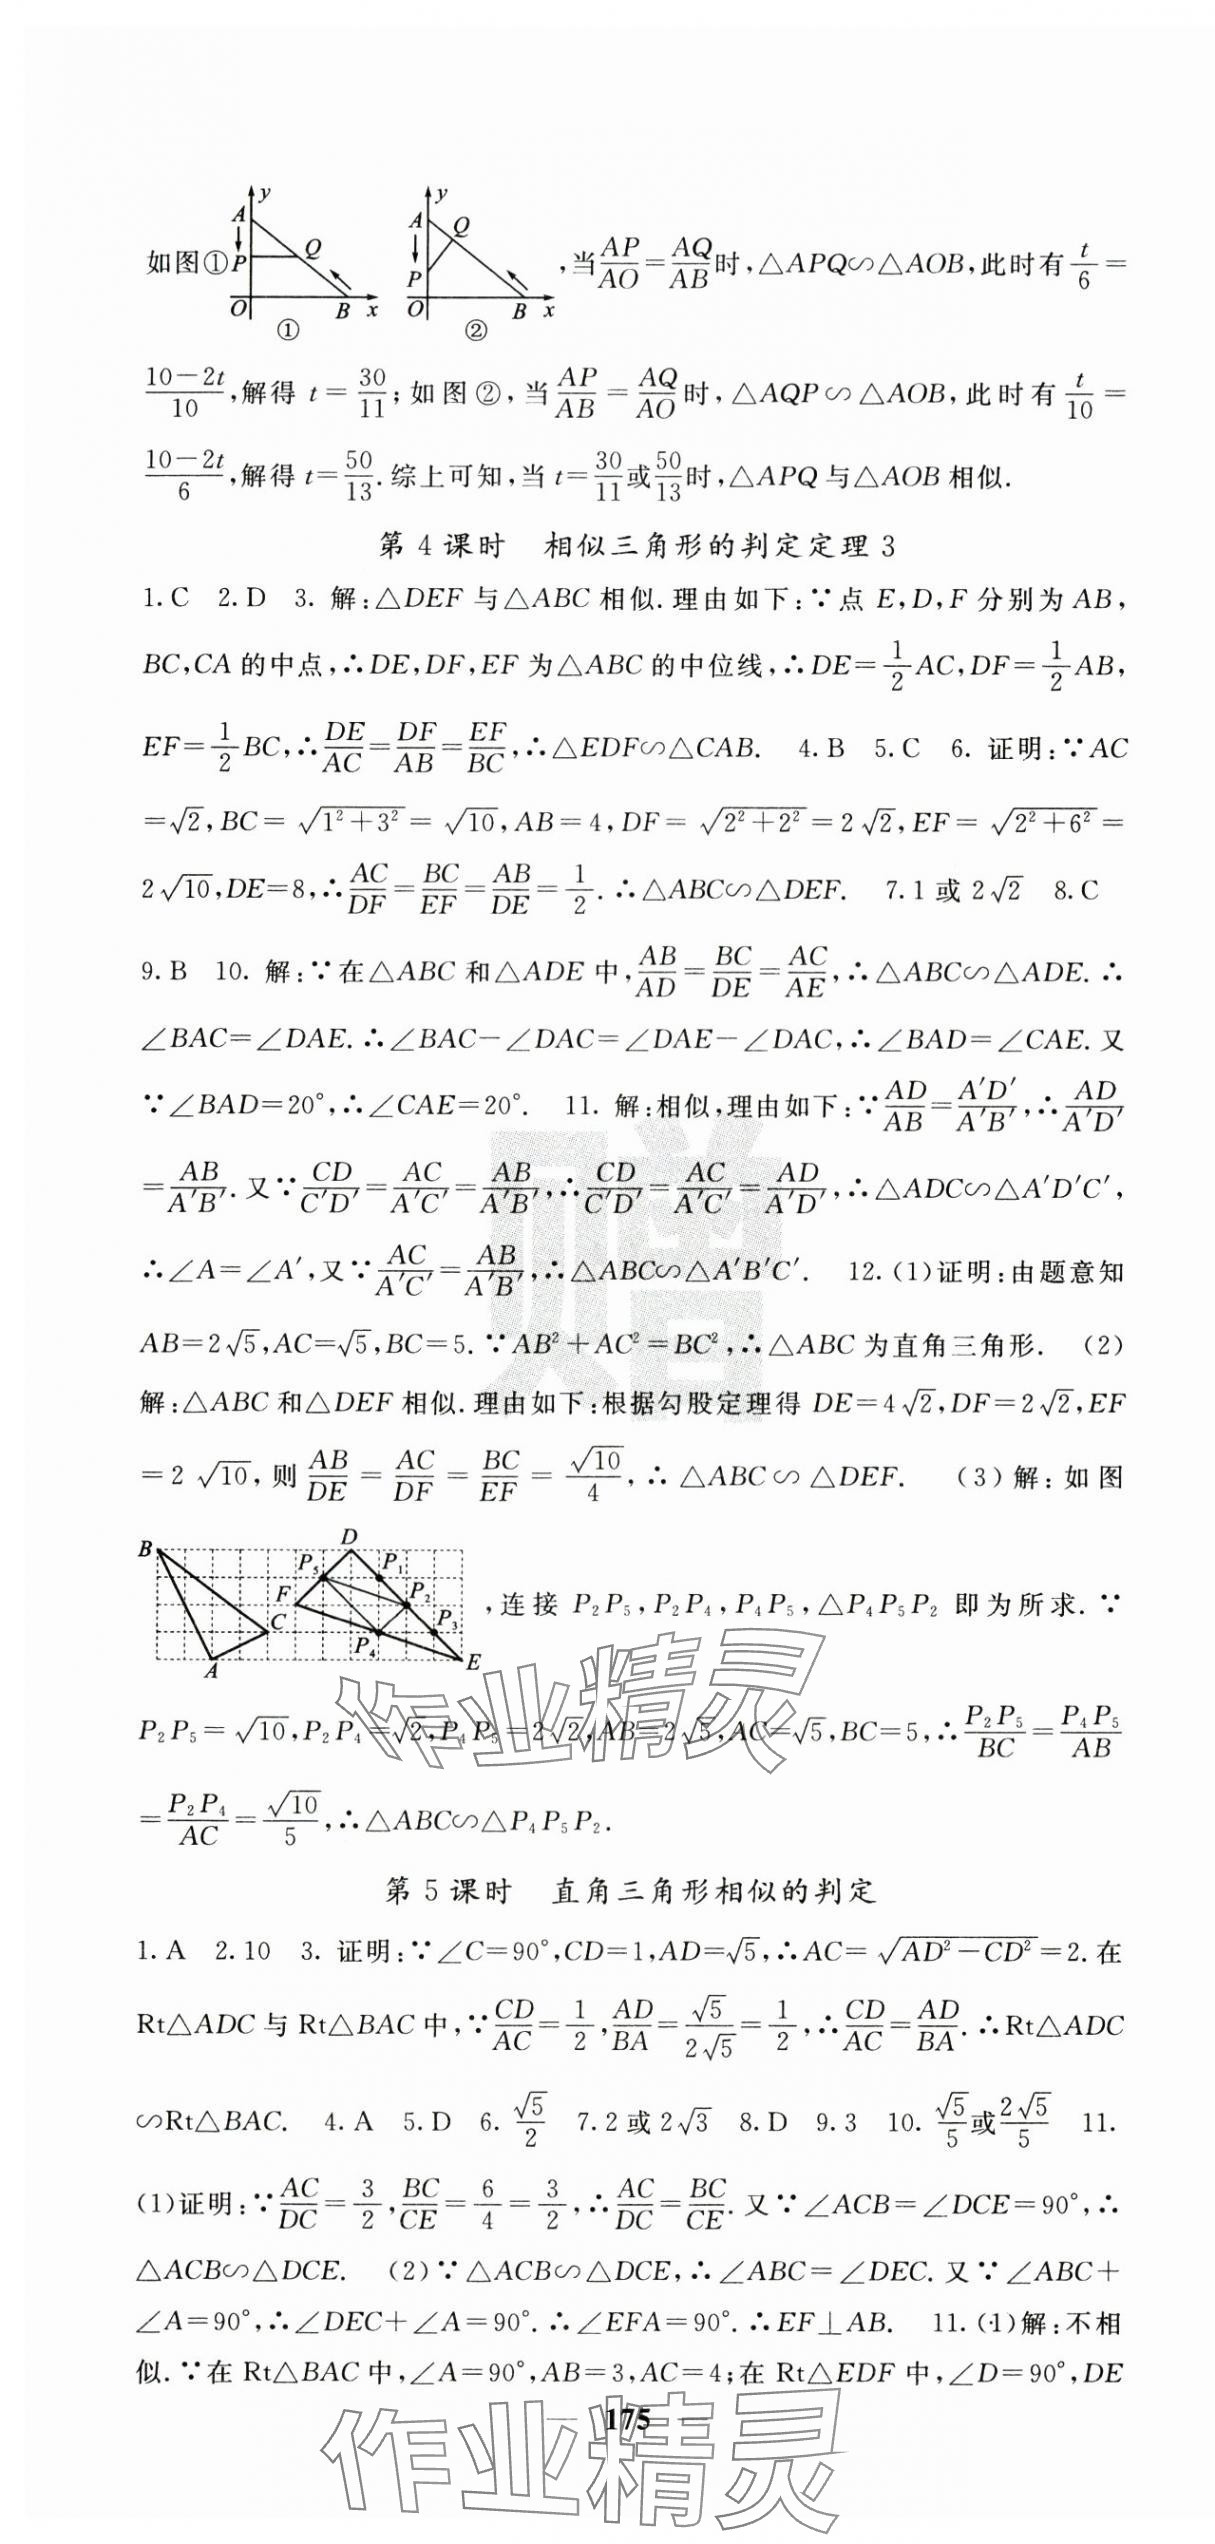 如图① A P O Q B x y ① A P O Q B x y ② ,当AP/AO=AQ/AB时,△APQ∽△AOB,此时有t/6=
(10-2t)/10,解得 t=30/11;如图②,当AP/AB=AQ/AO时,△AQP∽△AOB,此时有t/10=
(10-2t)/6,解得t=50/13.综上可知,当t=30/11或50/13时,△APQ与△AOB相似.
第4课时 相似三角形的判定定理3
1.C 2.D 3. 解:△DEF与△ABC相似.理由如下:∵点E,D,F分别为AB,
BC,CA的中点,∴DE,DF,EF为△ABC的中位线,∴DE=1/2AC,DF=1/2AB,
EF=1/2BC,∴DE/AC=DF/AB=EF/BC,∴△EDF∽△CAB. 4.B 5.C 6. 证明:∵AC
=√2,BC=√(1²+3²)=√10,AB=4,DF=√(2²+2²)=2√2,EF=√(2²+6²)=
2√10,DE=8,∴AC/DF=BC/EF=AB/DE=1/2.∴△ABC∽△DEF. 7.1或2√2 8.C
9.B 10. 解:∵在△ABC和△ADE中,AB/AD=BC/DE=AC/AE,∴△ABC∽△ADE.∴
∠BAC=∠DAE.∴∠BAC-∠DAC=∠DAE-∠DAC,∴∠BAD=∠CAE.又
∵∠BAD=20°,∴∠CAE=20°. 11. 解:相似,理由如下:∵AD/AB=A′D′/A′B′,∴AD/A′D′
=AB/A′B′.又∵CD/C′D′=AC/A′C′=AB/A′B′,∴CD/C′D′=AC/A′C′=AD/A′D′,∴△ADC∽△A′D′C′,
∴∠A=∠A′,又∵AC/A′C′=AB/A′B′,∴△ABC∽△A′B′C′. 12.(1)证明:由题意知
AB=2√5,AC=√5,BC=5.∵AB²+AC²=BC²,∴△ABC为直角三角形. (2)
解:△ABC和△DEF相似.理由如下:根据勾股定理得DE=4√2,DF=2√2,EF
=2√10,则AB/DE=AC/DF=BC/EF=√10/4,∴△ABC∽△DEF. (3)解:如图
B A C D F E P₁ P₂ P₃ P₄ P₅ ,连接P₂P₅,P₂P₄,P₄P₅,△P₄P₅P₂即为所求.∵
P₂P₅=√10,P₂P₄=√2,P₄P₅=2√2,AB=2√5,AC=√5,BC=5,∴P₂P₅/BC=P₄P₅/AB
=P₂P₄/AC=√10/5,∴△ABC∽△P₄P₅P₂.
第5课时 直角三角形相似的判定
1.A 2.10 3. 证明:∵∠C=90°,CD=1,AD=√5,∴AC=√(AD²-CD²)=2.在
Rt△ADC与Rt△BAC中,∵CD/AC=1/2,AD/BA=√5/2√5=1/2,∴CD/AC=AD/BA.∴Rt△ADC
∽Rt△BAC. 4.A 5.D 6.√5/2 7.2或2√3 8.D 9.3 10.√5/5或2√5/5 11.
(1)证明:∵AC/DC=3/2,BC/CE=6/4=3/2,∴AC/DC=BC/CE.又∵∠ACB=∠DCE=90°,∴
△ACB∽△DCE. (2)∵△ACB∽△DCE,∴∠ABC=∠DEC.又∵∠ABC+
∠A=90°,∴∠DEC+∠A=90°.∴∠EFA=90°.∴EF⊥AB. 11.(1)解:不相
似.∵在Rt△BAC中,∠A=90°,AB=3,AC=4;在Rt△EDF中,∠D=90°,DE
175
赠
作业精灵
作业精灵